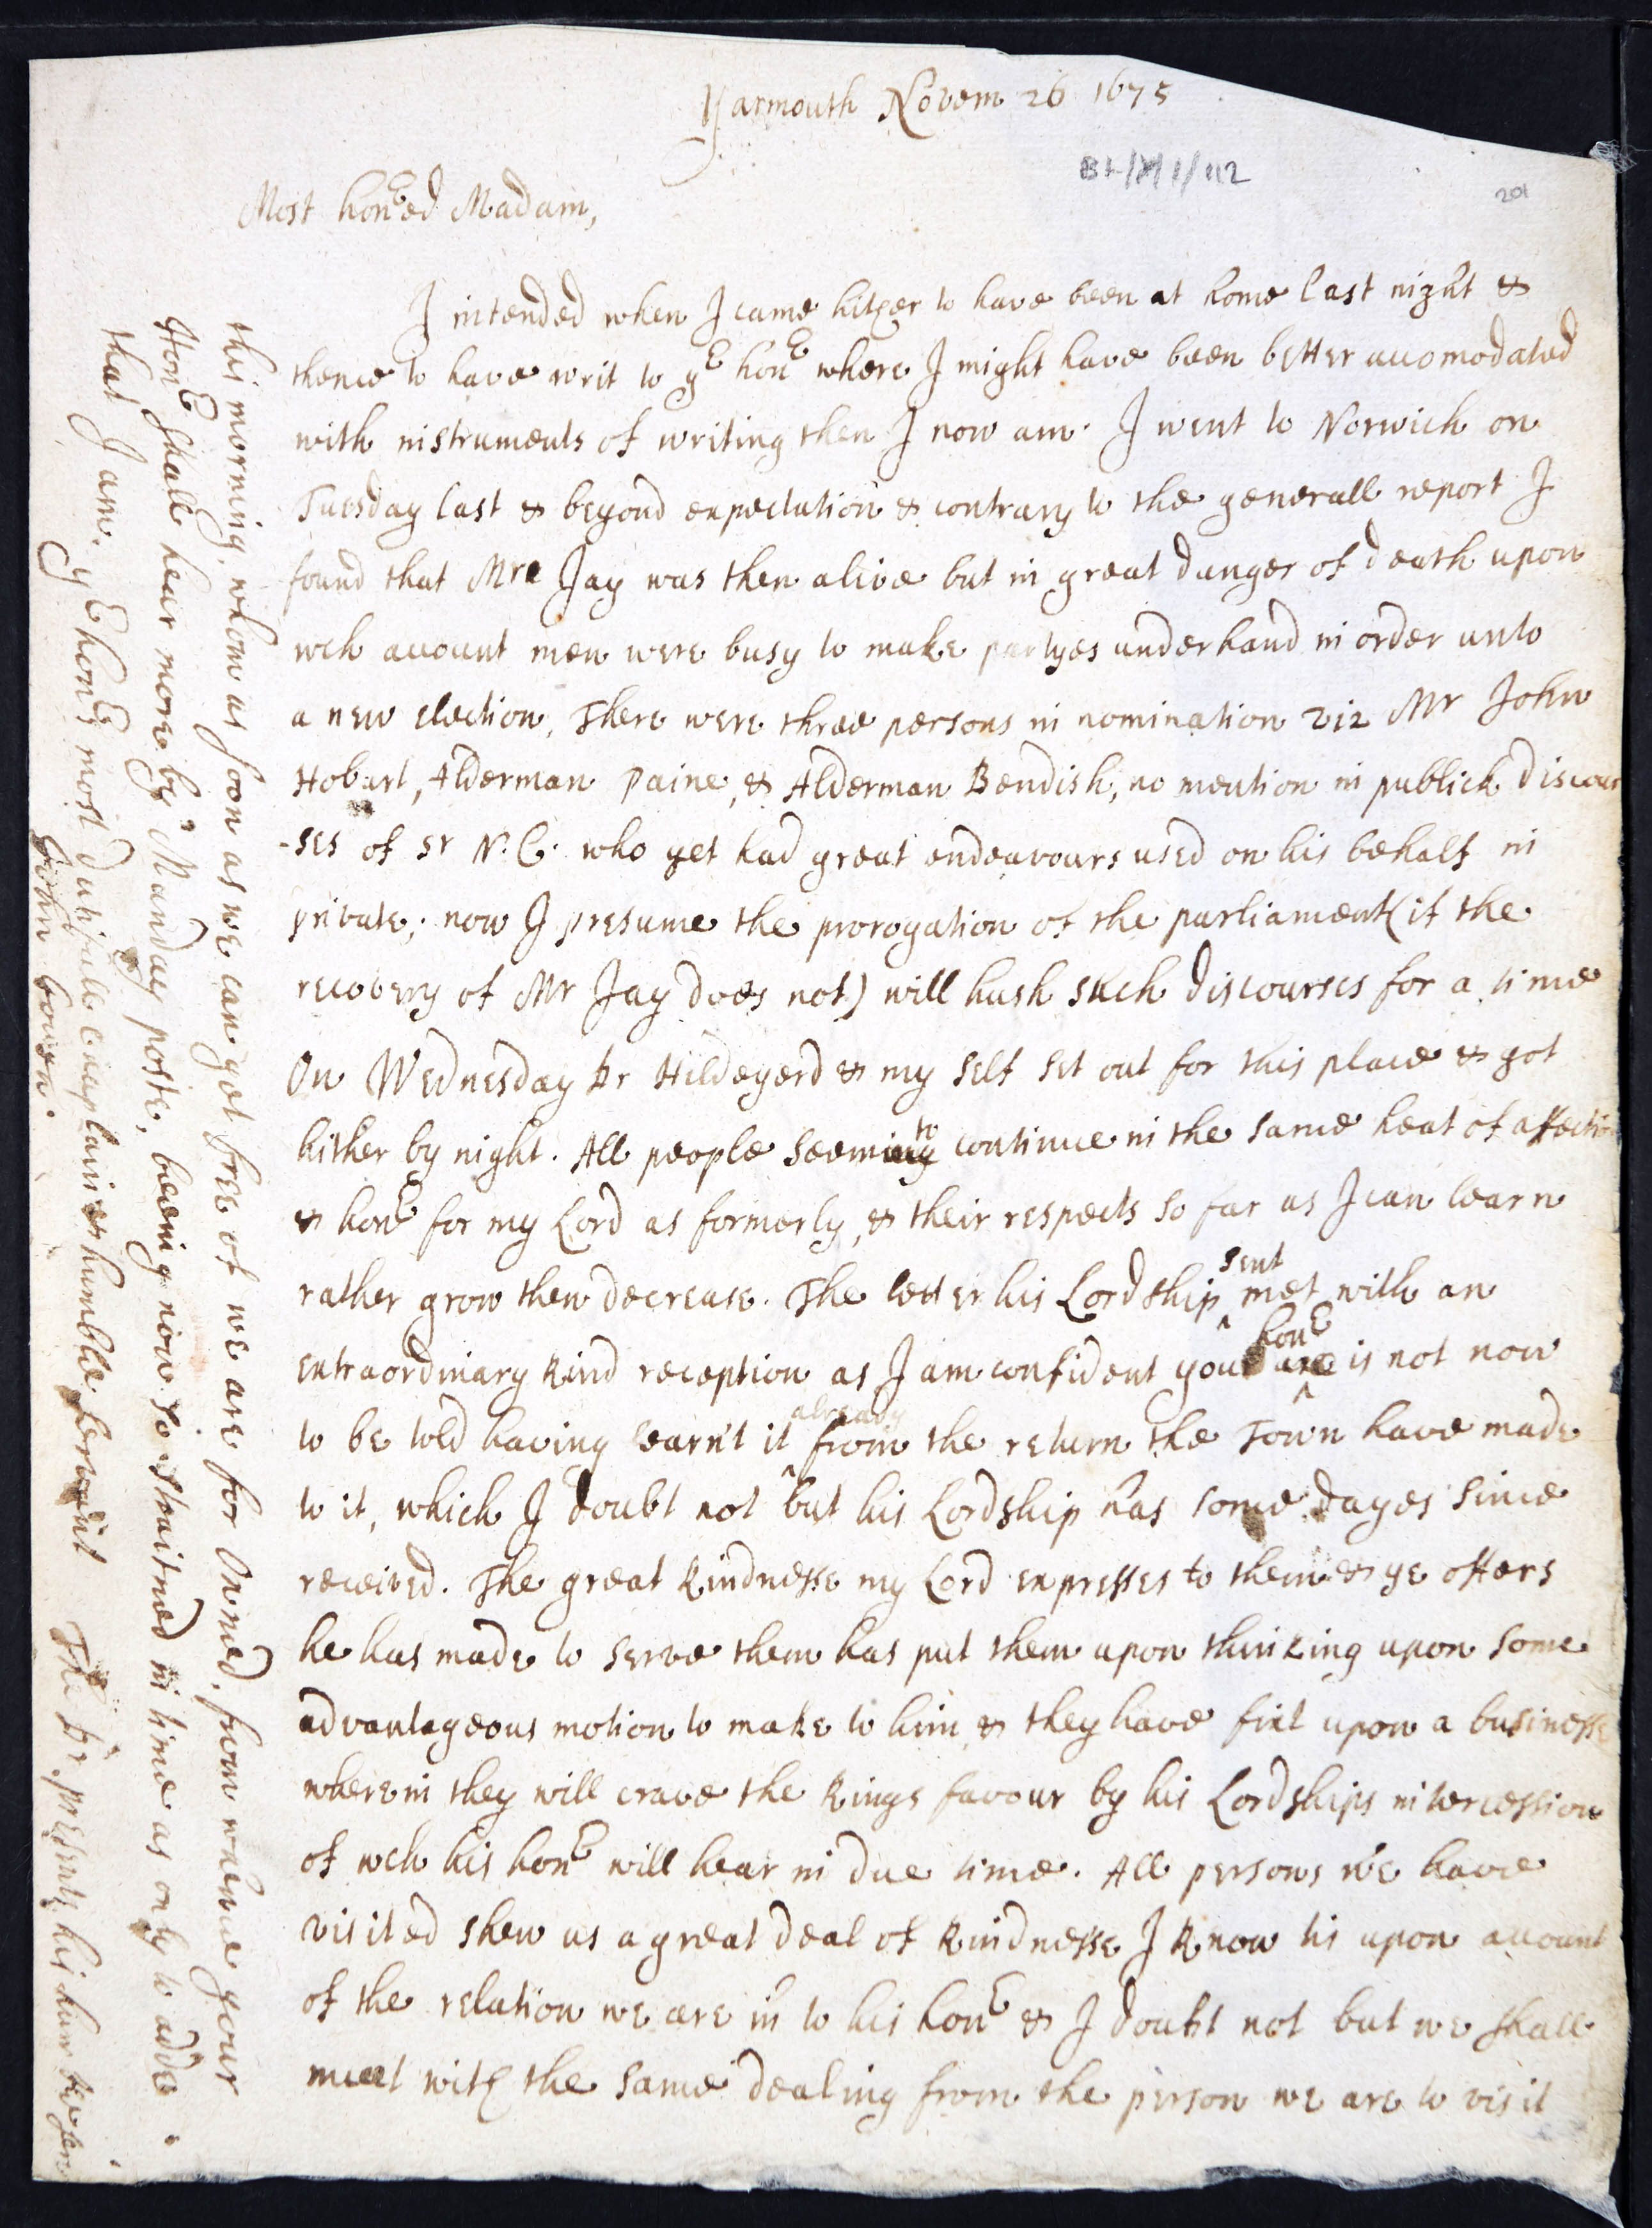 Yarmouth Novem 26 1675
BL/Y/1/112
201
Most honred Madam,
I intended when I came hither to have been at home last night &
thence to have writ to yr honr where I might have been better accomodated
with instruments of writing then I now am. I went to Norwich on
Tuesday last & beyond expectation & contrary to the generall report I
found that Mre Jay was then alive but in great danger of death upon
wch account men were busy to make partyes underhand in order unto
a new election, There were three persons in nomination viz Mr John
Hobart, Alderman Paine, & Alderman Bendish, no mention in publick discour
-ses of Sr N. C. who yet had great endeavours used on his behalf in
private; now I presume the prorogation of the parliament (if the
recovery of Mr Jay does not) will hush such discourses for a time
On Wednesday Dr Hildeyerd & my self set out for this place & got
hither by night. All people seeming to continue in the same heat of affectio
& honr for my Lord as formerly, & their respects so far as I can learn
rather grow then decrease. The letter his Lordship sent met with an
extraordinary kind reception as I am confident your honr is not now
to be told having learn't it already from the return the Town have made
to it, which I doubt not but his Lordship has some dayes since
received. The great kindnesse my Lord expresses to them & ye offers
he has made to serve them has put them upon thinking upon some
advantageous motion to make to him, & they have fixt upon a businesse
wherein they will crave the Kings favour by his Lordships intercession
of wch his honr will hear in due time. All persons we have
visited shew us a great deal of kindnesse I know tis upon account
of the relation we are in to his honr & I doubt not but we shall
meet with the same dealing from the person we are to visit
this morning, whom as soon as we can get free of we are for Oxned, from whence your
Honr shall hear more by Munday poste, being now so straitned in time as only to adde
that I am. yr honrs most dutifull Chaplain & humble servant
John Gough.
The Dr. presents his humble ser